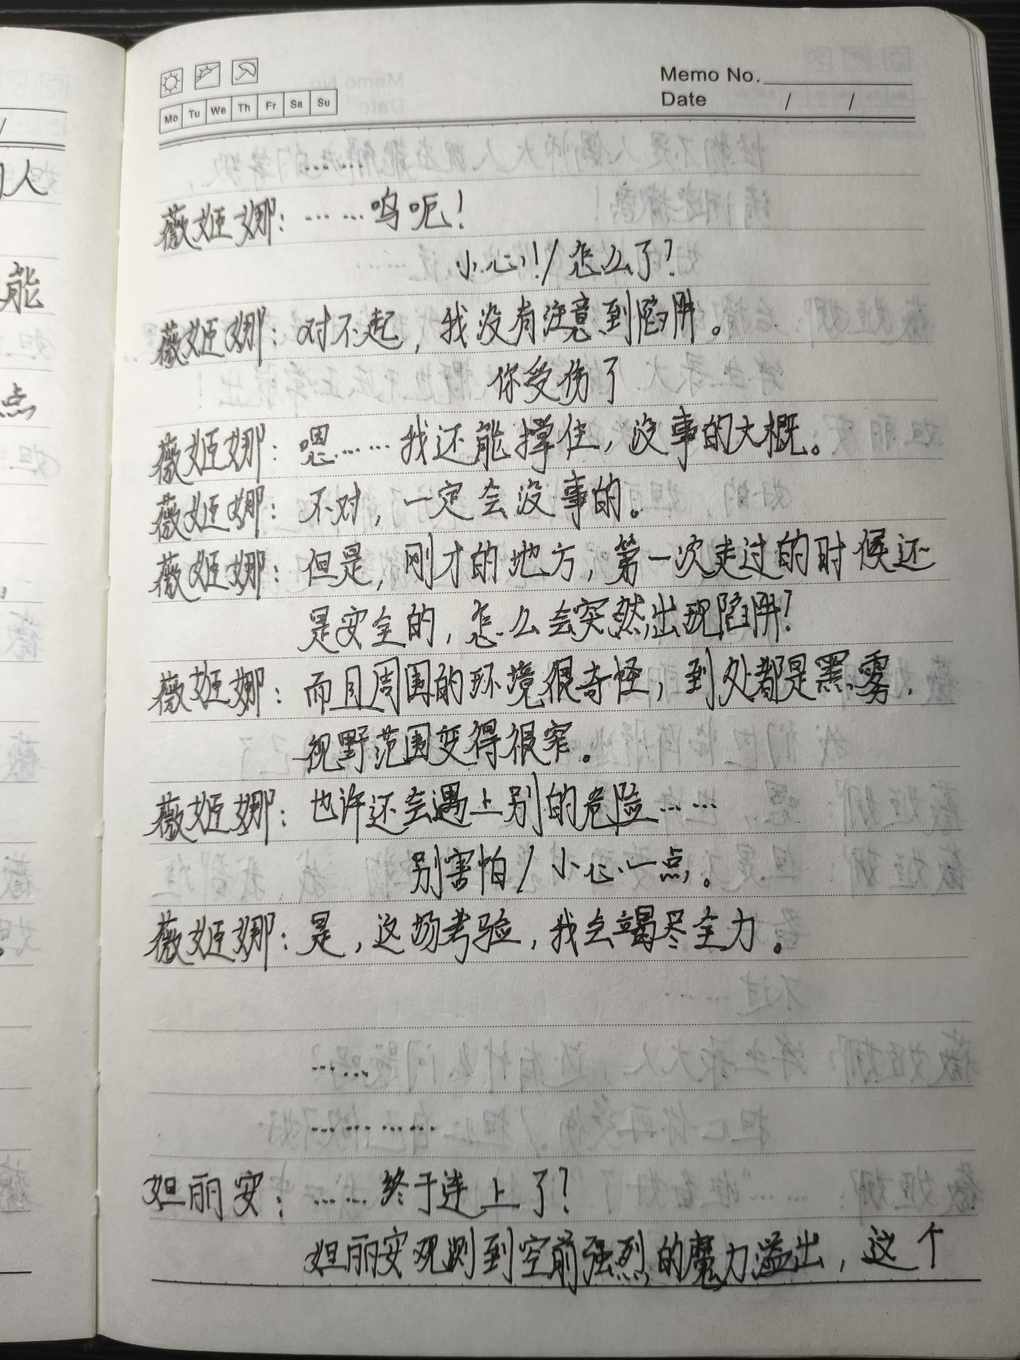 人
能
点
Mo Tu We Th Fr Sa Su
Memo No.
Date / /
…………
薇姬娜：……呜呃！
小心!!/怎么了？
薇姬娜：对不起，我没有注意到陷阱。
你受伤了
薇姬娜：嗯……我还能撑住，没事的大概。
薇姬娜：不对，一定会没事的。
薇姬娜：但是，刚才的地方，第一次走过的时候还
是安全的，怎么会突然出现陷阱？
薇姬娜：而且周围的环境很奇怪，到处都是黑雾，
视野范围变得很窄。
薇姬娜：也许还会遇上别的危险……
别害怕/小心一点。
薇姬娜：是，这场考验，我会竭尽全力。
……
…………
妲丽安：……终于连上了？
妲丽安观测到空前强烈的魔力溢出，这个